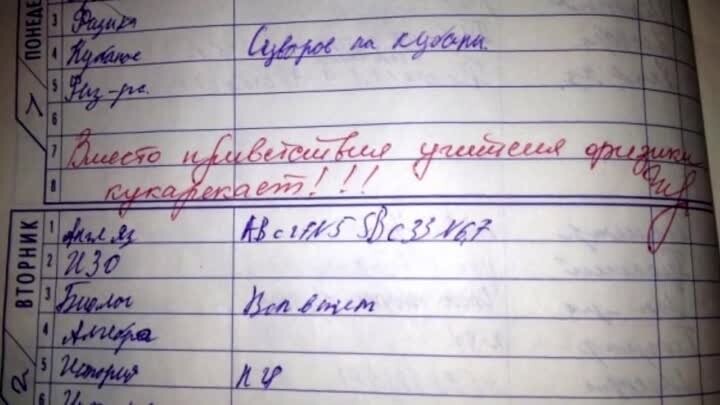 ПОНЕДЕ
3 Физика
4 Кубанов Суворов на кубани.
5 Физ-ра.
6
7 Вместо приветствия учителя физики
8 кукарекает!!!
ВТОРНИК
1 Англ яз АВ с 27 N5 SB с 33 N6,7
2 ИЗО
3 Биолог
4 Алгебра
5 История П 4
6
2